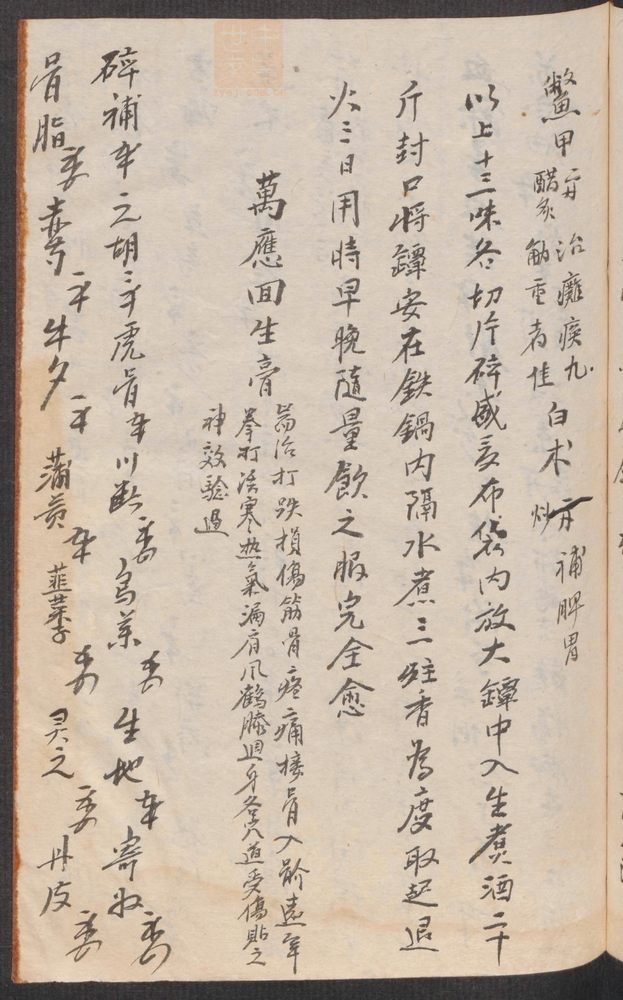 鱉甲 醋炙 治癰瘓九肋重者佳 白术 炒 補脾胃
以上十三味各切片碎盛麦布袋内放大罈中入生煮酒二十
斤封口將罈安在鉄鍋内隔水煮三炷香為度取起退
火三日用時早晚隨量飲之服完全愈
萬應回生膏
耑治打跌損傷筋骨疼痛接骨入骱遠年
拳打活寒热氣漏肩风鶴膝週身各穴道受傷貼之
神效驗過
碎補 之胡 虎骨 川断 烏藥 生地 寄奴
骨脂 赤芍 牛夕 蒲黄 韮菜子 灵之 丹皮